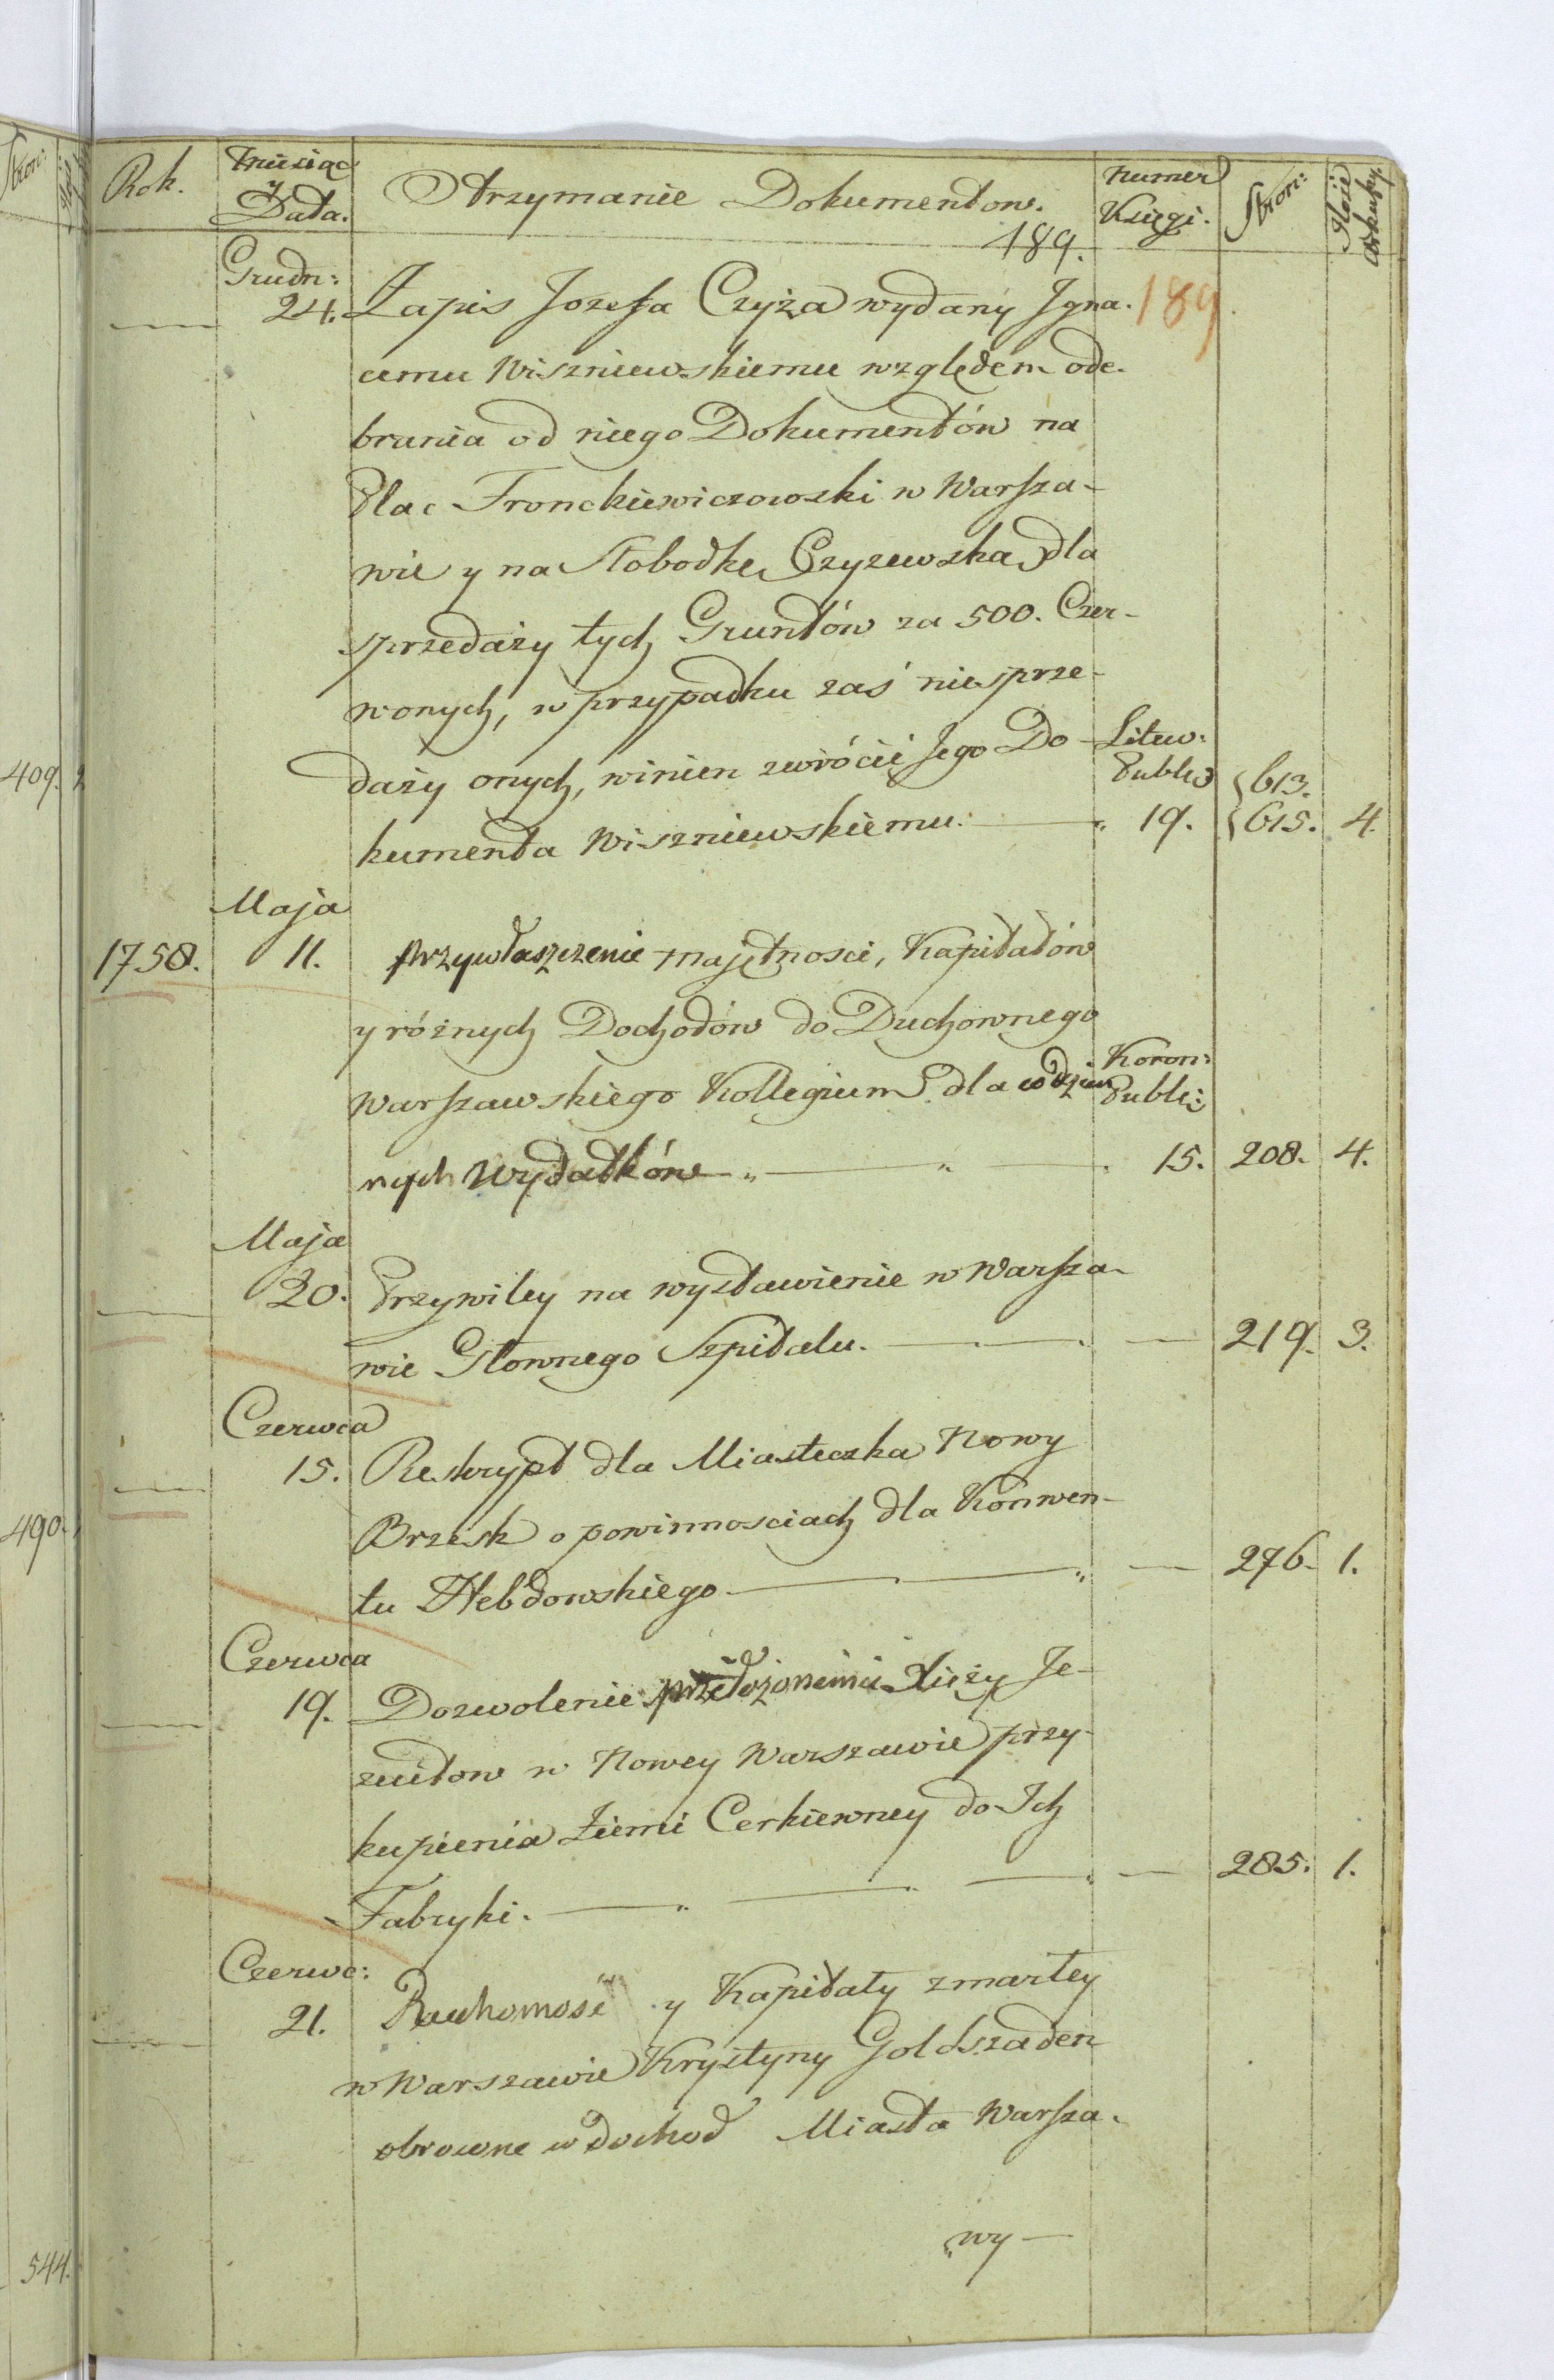 Stron:
Rok.
Miesiąc
y
Data.
Otrzymanie Dokumentow.
Numer
Księgi.
Stron:
Ilość
Arkuszy
189.
Grudn:
24. Zapis Jozefa Czyża wydany Igna- 189
cemu Wiszniewskiemu względem ode-
brania od niego Dokumentów na
Plac Fronckiewiczowski w Warsza-
wie y na Słobodkę Czyzewską dla
sprzedaży tych Gruntów za 500. Czer-
wonych, w przypadku zaś niesprze-
daży onych, winien zwrócić Jego Do- Litew:
kumenta Wiszniewskiemu. Publi: 19. 613. 615. 4.
409.
Maja
1758. 11. przywłaszczenie majętnosci, Kapitałów
y różnych Dochodów do Duchownego
Warszawskiego Kollegium dla codzien Koron: Publi:
nych wydatków 15. 208. 4.
Maja
20. Przywiley na wystawienie w Warsza-
wie Głownego Szpitalu. 219. 3.
Czerwca
15. Reskrypt dla Miasteczka Nowy
Brzesk o powinnosciach dla Konwen-
490.
tu Hebdowskiego 276. 1.
Czerwca
19. Dozwolenie przełożonemu Xięży Je-
zuitow w Nowey Warszawie przy-
kupienia Ziemi Cerkiewney do Ich
Fabryki. 285. 1.
Czerwc:
21. Ruchomość y Kapitały zmarłey
w Warszawie Krystyny Goldszaden
obrowne w dochod Miasta Warsza-
wy
544.